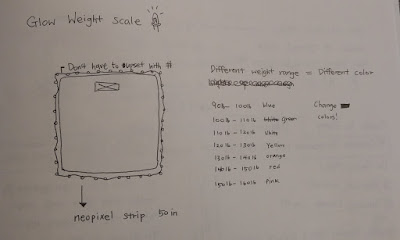 Glow Weight scale
Don't have to upset with #
Different weight range = Different color
90lb - 100lb blue
Change
100lb - 110lb green
colors!
110lb - 120lb
120lb - 130lb Yellow
130lb - 140lb orange
140lb - 150lb red
150lb - 160lb Pink
neopixel strip 50in